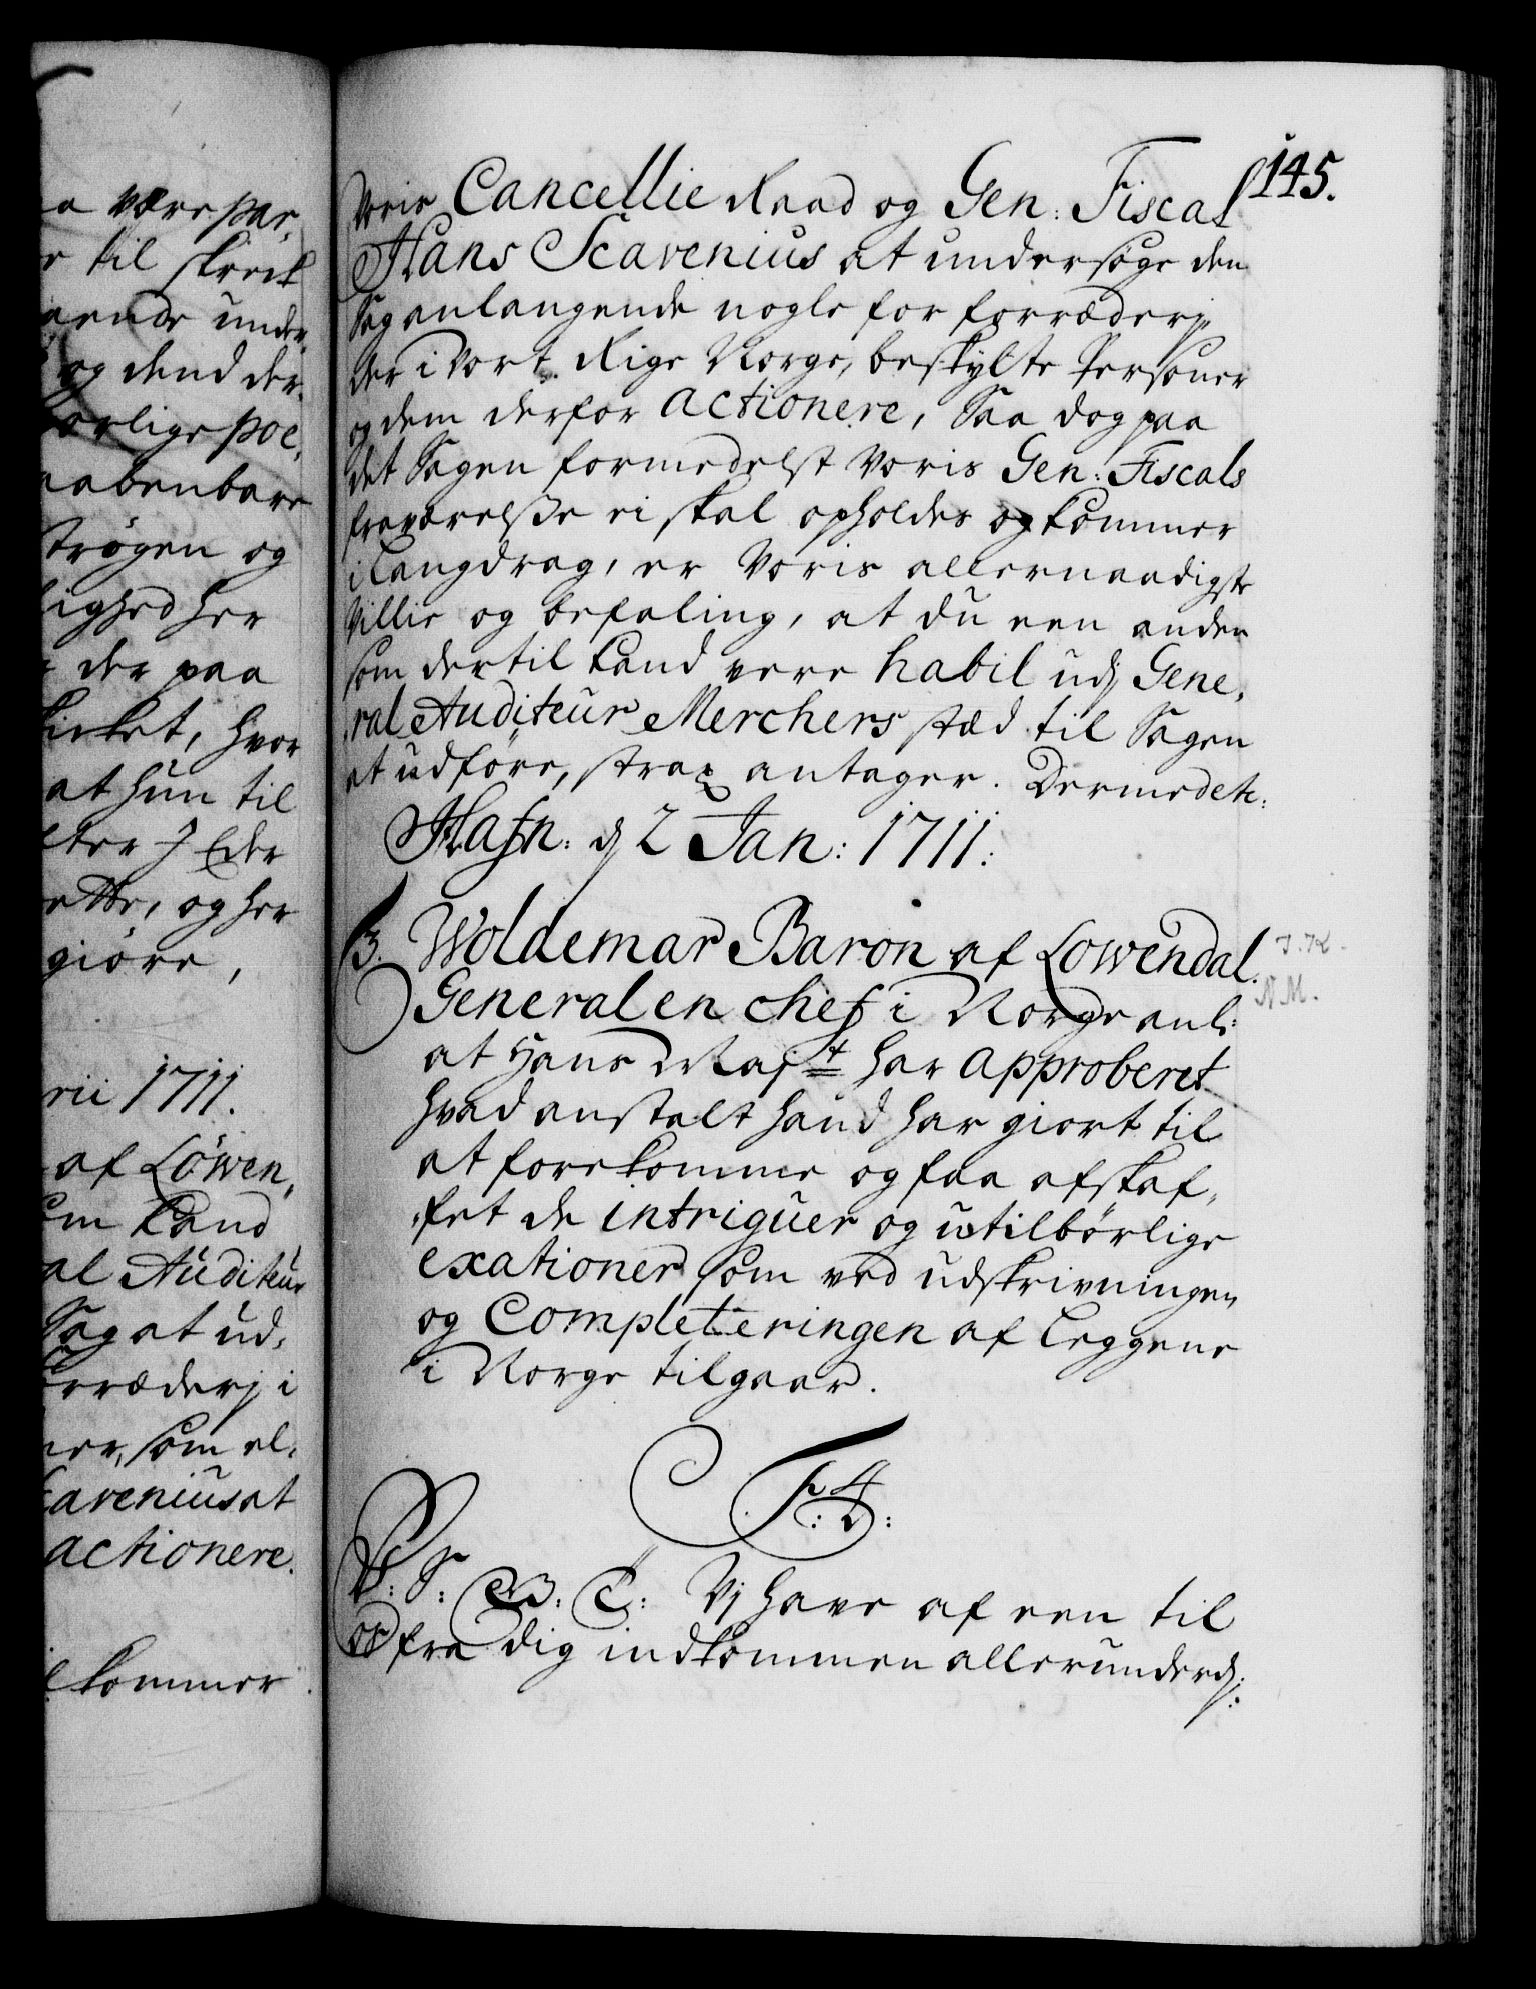 a være par,
r til skreck
aende under,
og dend der,
orlige poe,
aabenbare
trøgen og
lighed her
der paa
kirket, hvor
at hun til
eter I Eder
rette, og her
giøre,
rii 1711.
af Löwen,
em kand
al Auditeur
Sag at ud,
rræderj i
ner, som el,
caveniusat
actionere.
kommer
145.
Voris Cancellie Raad og Gen: Fiscal
Hans Scavenius at undersøge den
Sag anlangende nogle for forræderje
der i Vort Rige Norge, beskylte Personer
og dem derfor actionere, Saa dog paa
det Sagen formedelst Voris Gen: Fiscals
fraværelsse ei skal opholdes og kommer
i langdrag, er Voris allernaadigste
Villie og befaling, at du een anden
som dertil kand vere habil udj Gene,
ral Auditeur Merchers stæd til Sagen
at udføre, strax antager. Dermed etc:
Hafn: dj 2 Jan: 1711:
3. Woldemar Baron af Lowendal.
General en chef i Norge anl:
at Hans Majt har approberet
hvad anstalt hand har giort til
at forekomme og faa afskaf,
fet de intriguer og utilbørlige
exationer som ved udskrivningen
og Completeringen af leggene
i Norge tilgaar.
F: 4:
V: S: G: T: Vj have af een til
os fra dig indkommen allerunderdj: